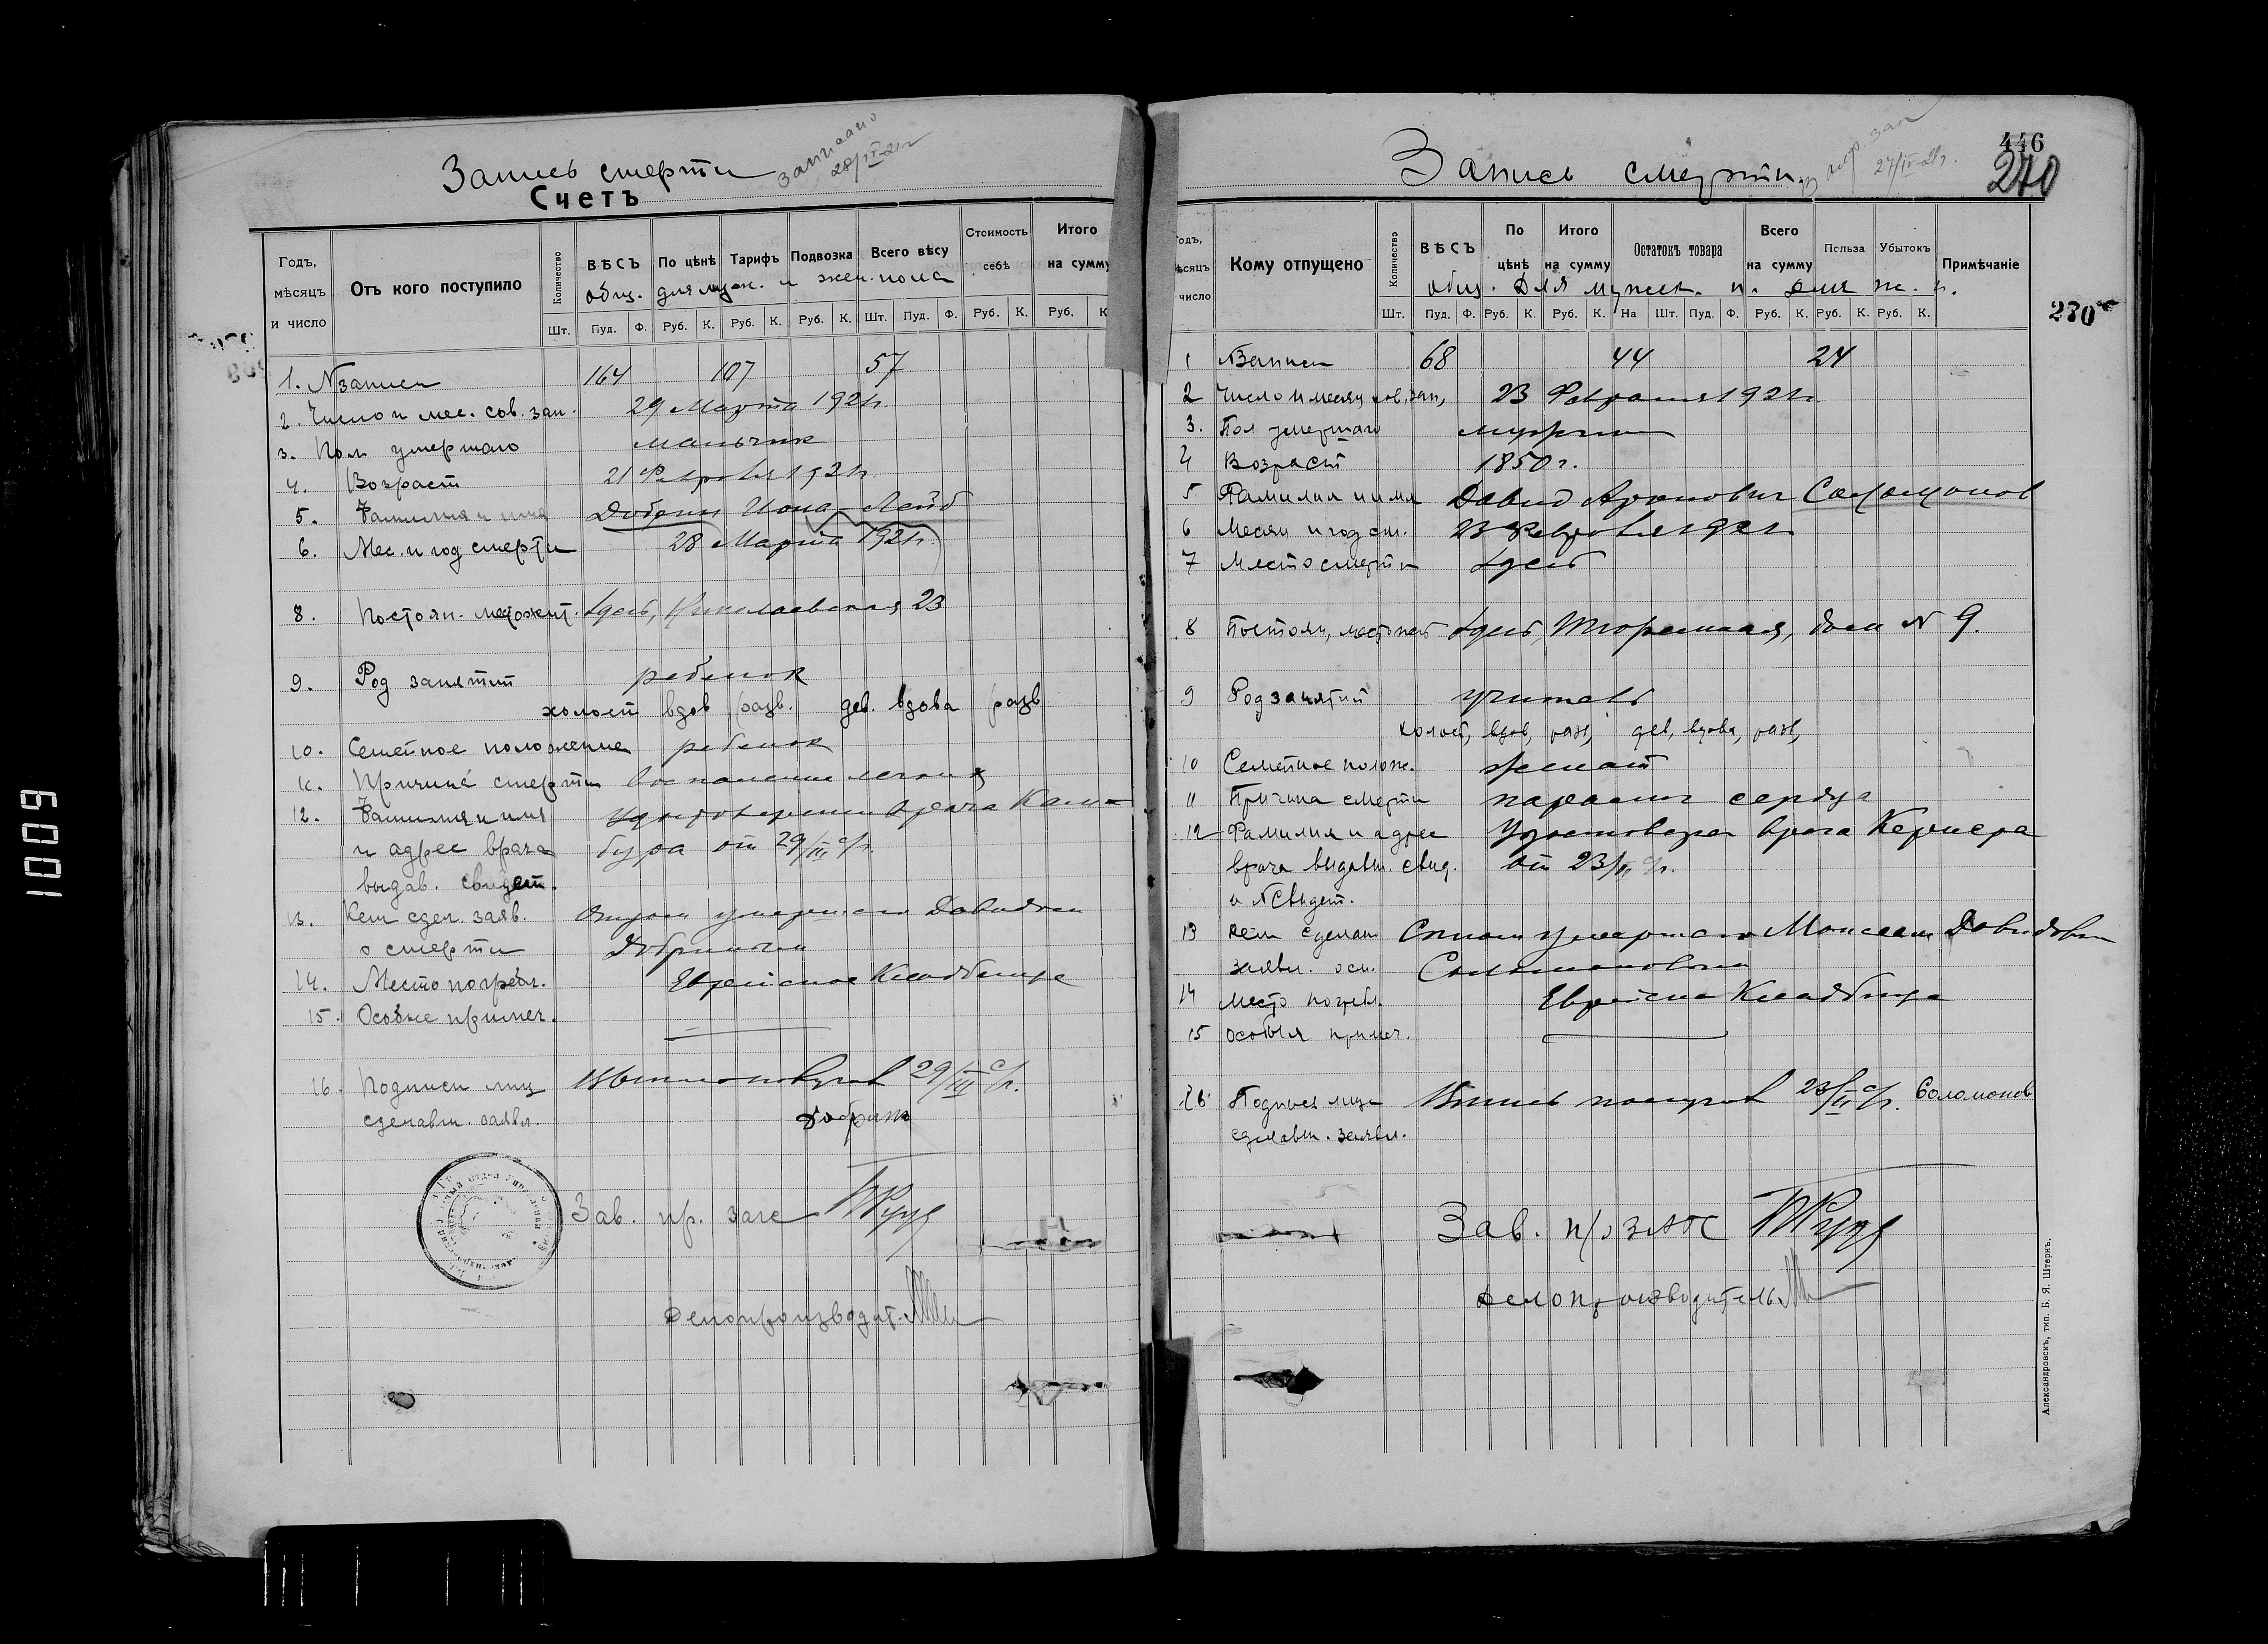 Запись смерти
записано
28/IV-21г
Счетъ
Годъ, мѣсяцъ и число
Отъ кого поступило
Количество
ВѢСЪ
По цѣнѣ
Тарифъ
Подвозка
Всего вѣсу
Стоимость себѣ
Итого на сумму
общ. для муж. и жен. пола
Шт. Пуд. Ф. Руб. К. Руб. К. Руб. К. Шт. Пуд. Ф. Руб. К. Руб. К
1. № записи 164 107 57
2. Число и мес. сов. зап. 29 Марта 1921г.
3. Пол умершаго мальчик
4. Возраст 21 Февраля 1921г
5. Фамилия и имя Добрин Иона-Лейб
6. Мес. и год смерти 28 Марта 1921г.
8. Постоян. местожит. здесь, Николаевская 23
9. Род занятий ребенок
холост вдов разв. дев. вдова разв
10. Семейное положение ребенок
11. Причина смерти воспаление легких
12. Фамилия и имя удостоверение врача Кам-
и адрес врача бура от 29/III с/г.
выдав. свидет.
13. Кем сдел. заяв. отцом умершаго Давидом
о смерти Добриным
14. Место погребл. Еврейское Кладбище
15. Особые примеч.
16. Подписи лиц 29/III с/г.
сделавш. заявл. Добрин
Зав. пр. загс
Делопроизводит.
Запись смерти
зап
27/IV-21г.
446
270
270
Годъ, мѣсяцъ число
Кому отпущено
Количество
ВѢСЪ
По цѣнѣ
Итого на сумму
Остатокъ товара
Всего на сумму
Польза
Убытокъ
Примѣчаніе
общ. Для мужск. п. для ж. п.
Шт. Пуд. Ф. Руб. К. Руб. К. На Шт. Пуд. Ф. Руб. К. Руб. К. Руб. К.
1 №Записи 68 44 24
2 Число и месяц сов, зап, 23 Февраля 1921г
3. Пол умершаго мужчин
4 Возраст 1850 г.
5 Фамилия и имя Давид Аронович Соломонов
6 Месяц и год см. 23 Февраля 1921г
7 Место смерти здесь
8 Постоян, местожит здесь, дом № 9.
9 Род занятий учитель
холост, вдов, разв, дев, вдова, разв,
10 Семейное полож. женат
11 Причина смерти паралич сердца
12 Фамилия и адрес Удостовер врача Кернера
врача выдавш. свид. от 23/II с/г.
и №свидет.
13 Кем сделан Сыном умершаго Моисеем Давидович
заявл. о см. Соломоновым
14 Место погребл. Еврейское Кладбище
15 Особыя примеч.
16 Подписи лица 23/II с/г. Соломонов
сделавш. заявл.
Зав. п/о загс
Делопроизводитель
Александровскъ, тип. Б. Я. Штернъ.
1009